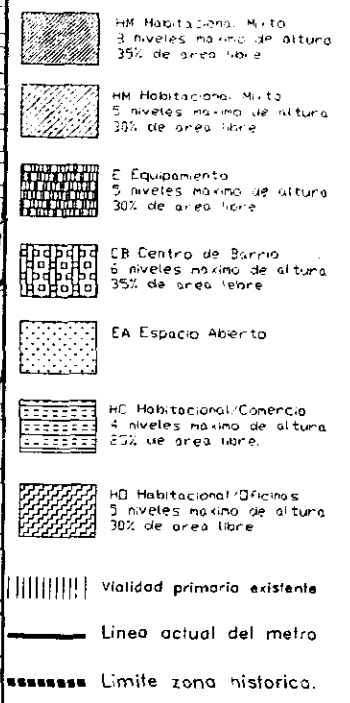 HM Habitacional Mixto
8 niveles maximo de altura
35% de area libre
HM Habitacional Mixto
5 niveles maximo de altura
30% de area libre
E Equipamiento
5 niveles maximo de altura
30% de area libre
CB Centro de Barrio
6 niveles maximo de altura
35% de area lebre
EA Espacio Abierto
HC Habitacional/Comercio
4 niveles maximo de altura
25% de area libre.
HO Habitacional/Oficinas
5 niveles maximo de altura
30% de area libre
Vialidad primaria existente
Linea actual del metro
Limite zona historica.